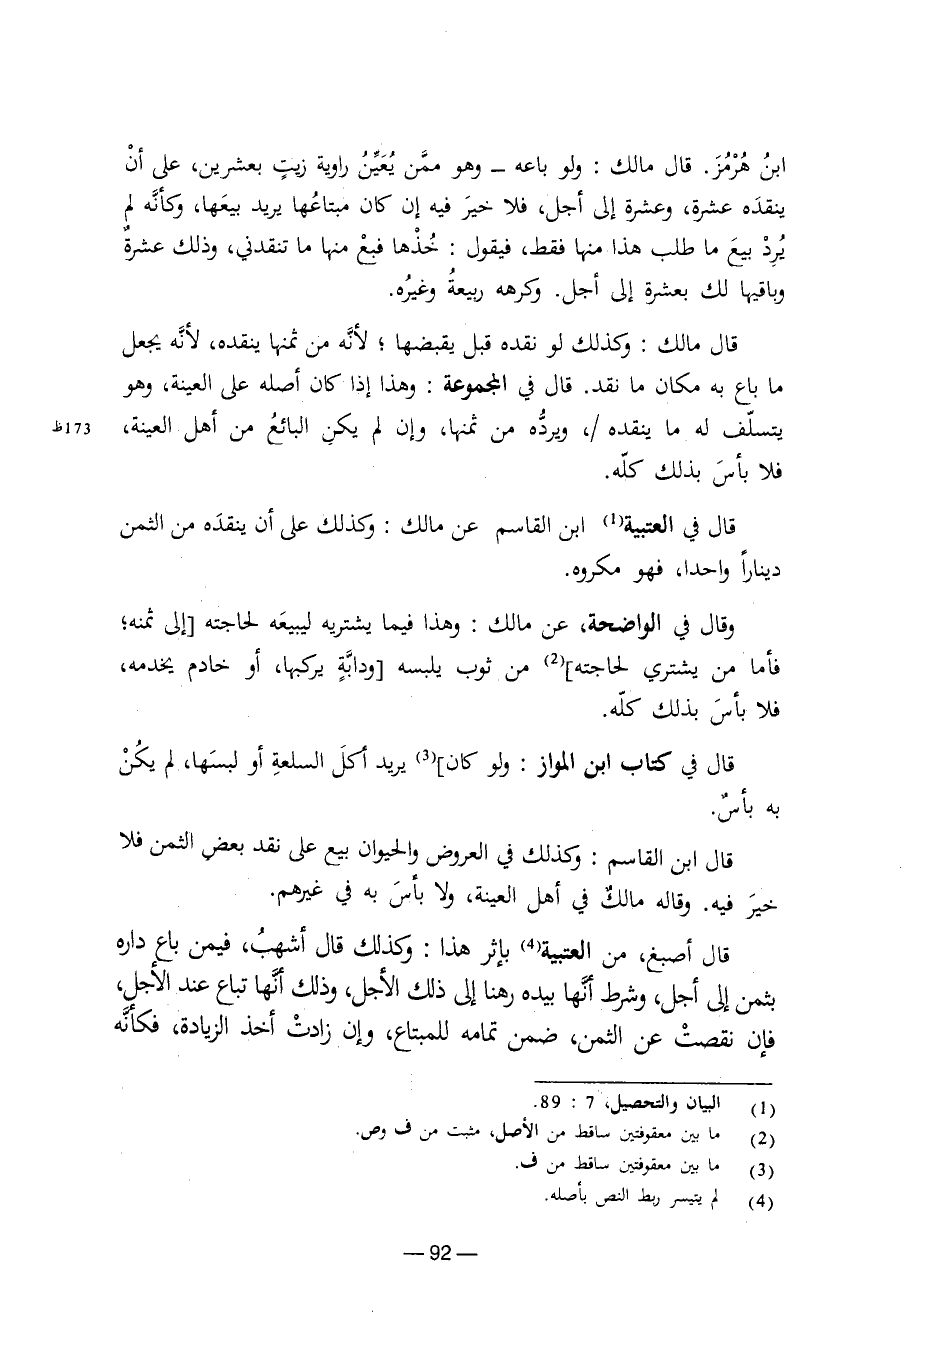 ابنُ هُرْمُزَ. قال مالك : ولو باعه ــ وهو ممَّن يُعَيِّنُ راوية زيتٍ بعشرين، على أنْ
ينقدَه عشرة، وعشرة إلى أجل، فلا خيرَ فيه إن كان مبتاعُها يريد بيعَها، وكأنَّه لم
يُرِدْ بيعَ ما طلب هذا منها فقط، فيقول : خُذْها فبعْ منها ما تنقدني، وذلك عشرةٌ
وباقيها لك بعشرة إلى أجل. وكرهه ربيعةُ وغيرُه.
قال مالك : وكذلك لو نقده قبل يقبضها ؛ لأنَّه من ثمنها ينقده، لأنَّه يجعل
ما باع به مكان ما نقد. قال في المجموعة : وهذا إذا كان أصله على العينة، وهو
يتسلّف له ما ينقده /، ويردُّه من ثمنها، وإن لم يكنِ البائعُ من أهل العينة،
173ظ
فلا بأسَ بذلك كلّه.
قال في العتبية(1) ابن القاسم عن مالك : وكذلك على أن ينقدَه من الثمن
ديناراً واحدا، فهو مكروه.
وقال في الواضحة، عن مالك : وهذا فيما يشتريه ليبيعَه لحاجته [إلى ثمنه؛
فأما من يشتري لحاجته](2) من ثوب يلبسه [ودابَّةٍ يركبها، أو خادم يخدمه،
فلا بأسَ بذلك كلّه.
قال في كتاب ابن المواز : ولو كان](3) يريد أكلَ السلعةِ أو لبسَها، لم يكُنْ
به بأسٌ.
قال ابن القاسم : وكذلك في العروض والحيوان بيع على نقد بعضِ الثمن فلا
خيرَ فيه. وقاله مالكٌ في أهل العينة، ولا بأسَ به في غيرهم.
قال أصبغ، من العتبية(4) بإثر هذا : وكذلك قال أشهبُ، فيمن باع داره
بثمن إلى أجل، وشرط أنَّها بيده رهنا إلى ذلك الأجل، وذلك أنَّها تباع عند الأجل،
فإن نقصتْ عن الثمن، ضمن تمامه للمبتاع، وإن زادتْ أخذ الزيادة، فكأنَّه
(1) البيان والتحصيل، 7 : 89.
(2) ما بين معقوفتين ساقط من الأصل، مثبت من ف وص.
(3) ما بين معقوفتين ساقط من ف.
(4) لم يتيسر ربط النص بأصله.
— 92 —